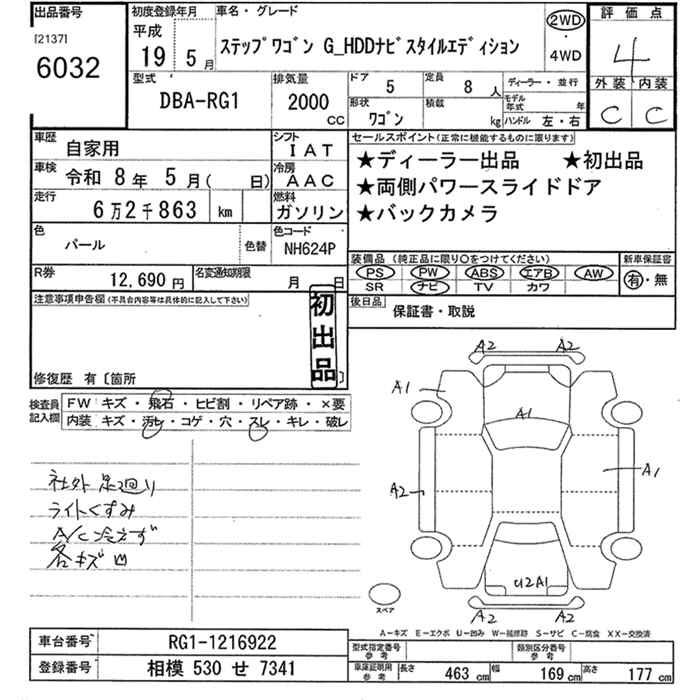 出品番号
[2137]
6032
初度登録年月
平成
19 5 月
車名・グレード
ステップワゴン G_HDDナビスタイルエディション
2WD
・
4WD
評価点
4
外装 内装
C C
型式
DBA-RG1
排気量
2000
CC
ドア
5
定員
8 人
形状
ワゴン
積載
kg
ディーラー・並行
モデル年式 年
ハンドル 左・右
車歴
自家用
シフト
IAT
車検
令和 8 年 5 月( 日)
冷房
AAC
走行
6万2千863 km
燃料
ガソリン
色
パール
色替
色コード
NH624P
R券
12,690 円
名変通知期限
月 日
セールスポイント(正常に機能するものに限ります)
★ディーラー出品 ★初出品
★両側パワースライドドア
★バックカメラ
装備品 (純正品に限り○をつけてください)
PS PW ABS エアB AW
SR ナビ TV カワ
新車保証書
有・無
後日品
保証書・取説
注意事項申告欄(不具合内容等は具体的に記入して下さい)
初出品
修復歴 有〔箇所 〕
検査員記入欄
FW キズ・飛石・ヒビ割・リペア跡・×要
内装 キズ・汚レ・コゲ・穴・スレ・キレ・破レ
社外 足廻り
ライトくすみ
A/C冷えず
各キズ凹
A2 A2
A1
A1
A2
A1
U2A1
A2 A2
スペア
A-キズ E-エクボ U-凹み W-補修跡 S-サビ C-腐食 XX-交換済
車台番号
RG1-1216922
登録番号
相模 530 せ 7341
型式指定番号
参考
類別区分番号
参考
車庫証明用
参考
長さ
463 cm
幅
169 cm
高さ
177 cm